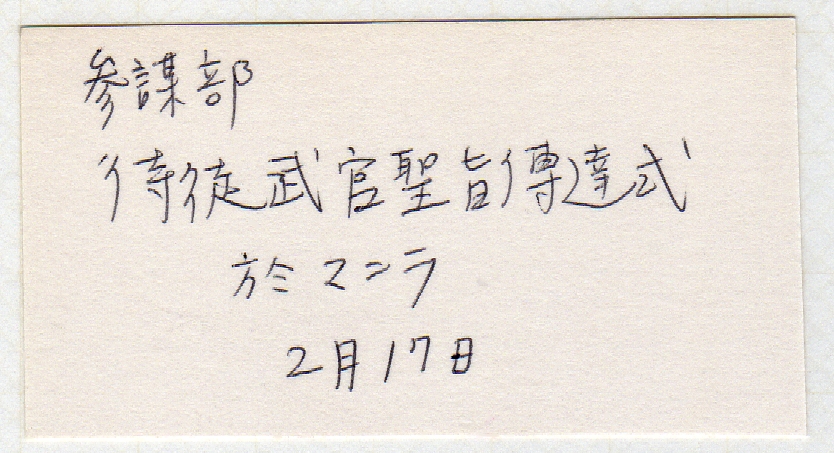 参謀部
侍従武官聖旨傳達式
於マニラ
2月17日